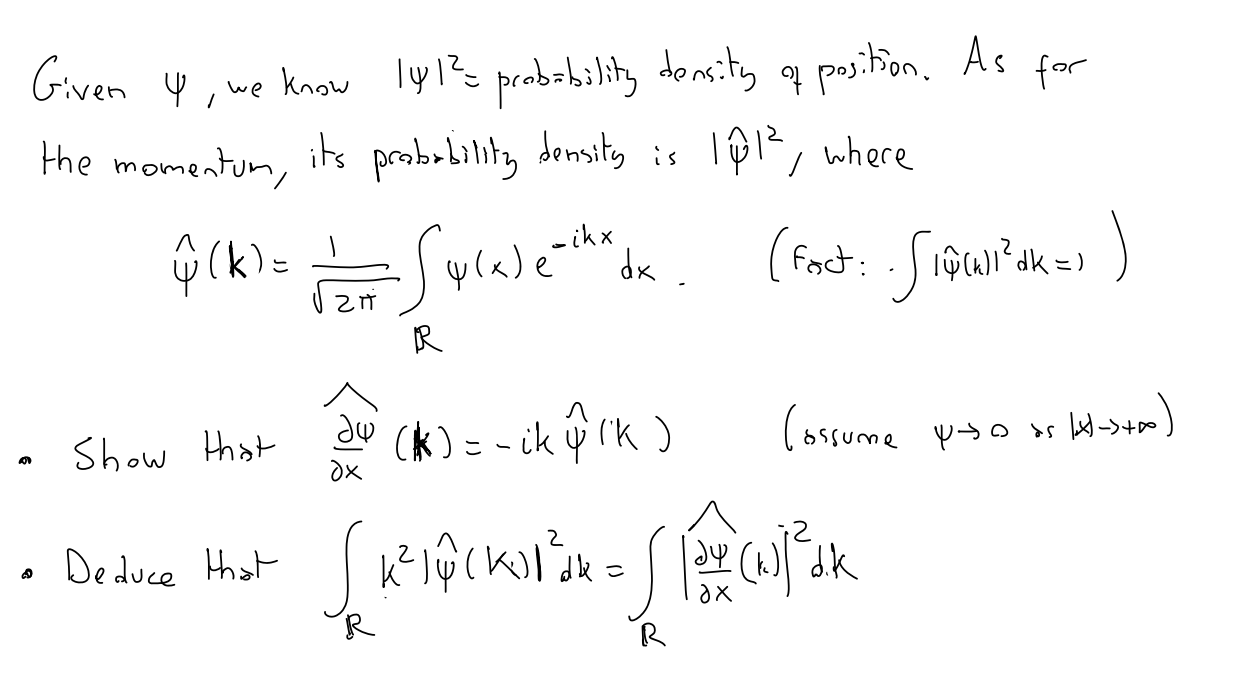 Given ψ, we know |ψ|² = probability density of position. As for
the momentum, its probability density is |ψ̂|², where
ψ̂(k) = 1/√(2π) ∫_ℝ ψ(x) e^{-ikx} dx. (Fact: ∫|ψ̂(k)|² dk = 1)
• Show that \widehat{∂ψ/∂x}(k) = -ik ψ̂(k) (assume ψ → 0 as |x| → +∞)
• Deduce that ∫_ℝ k²|ψ̂(k)|² dk = ∫_ℝ |\widehat{∂ψ/∂x}(k)|² dk